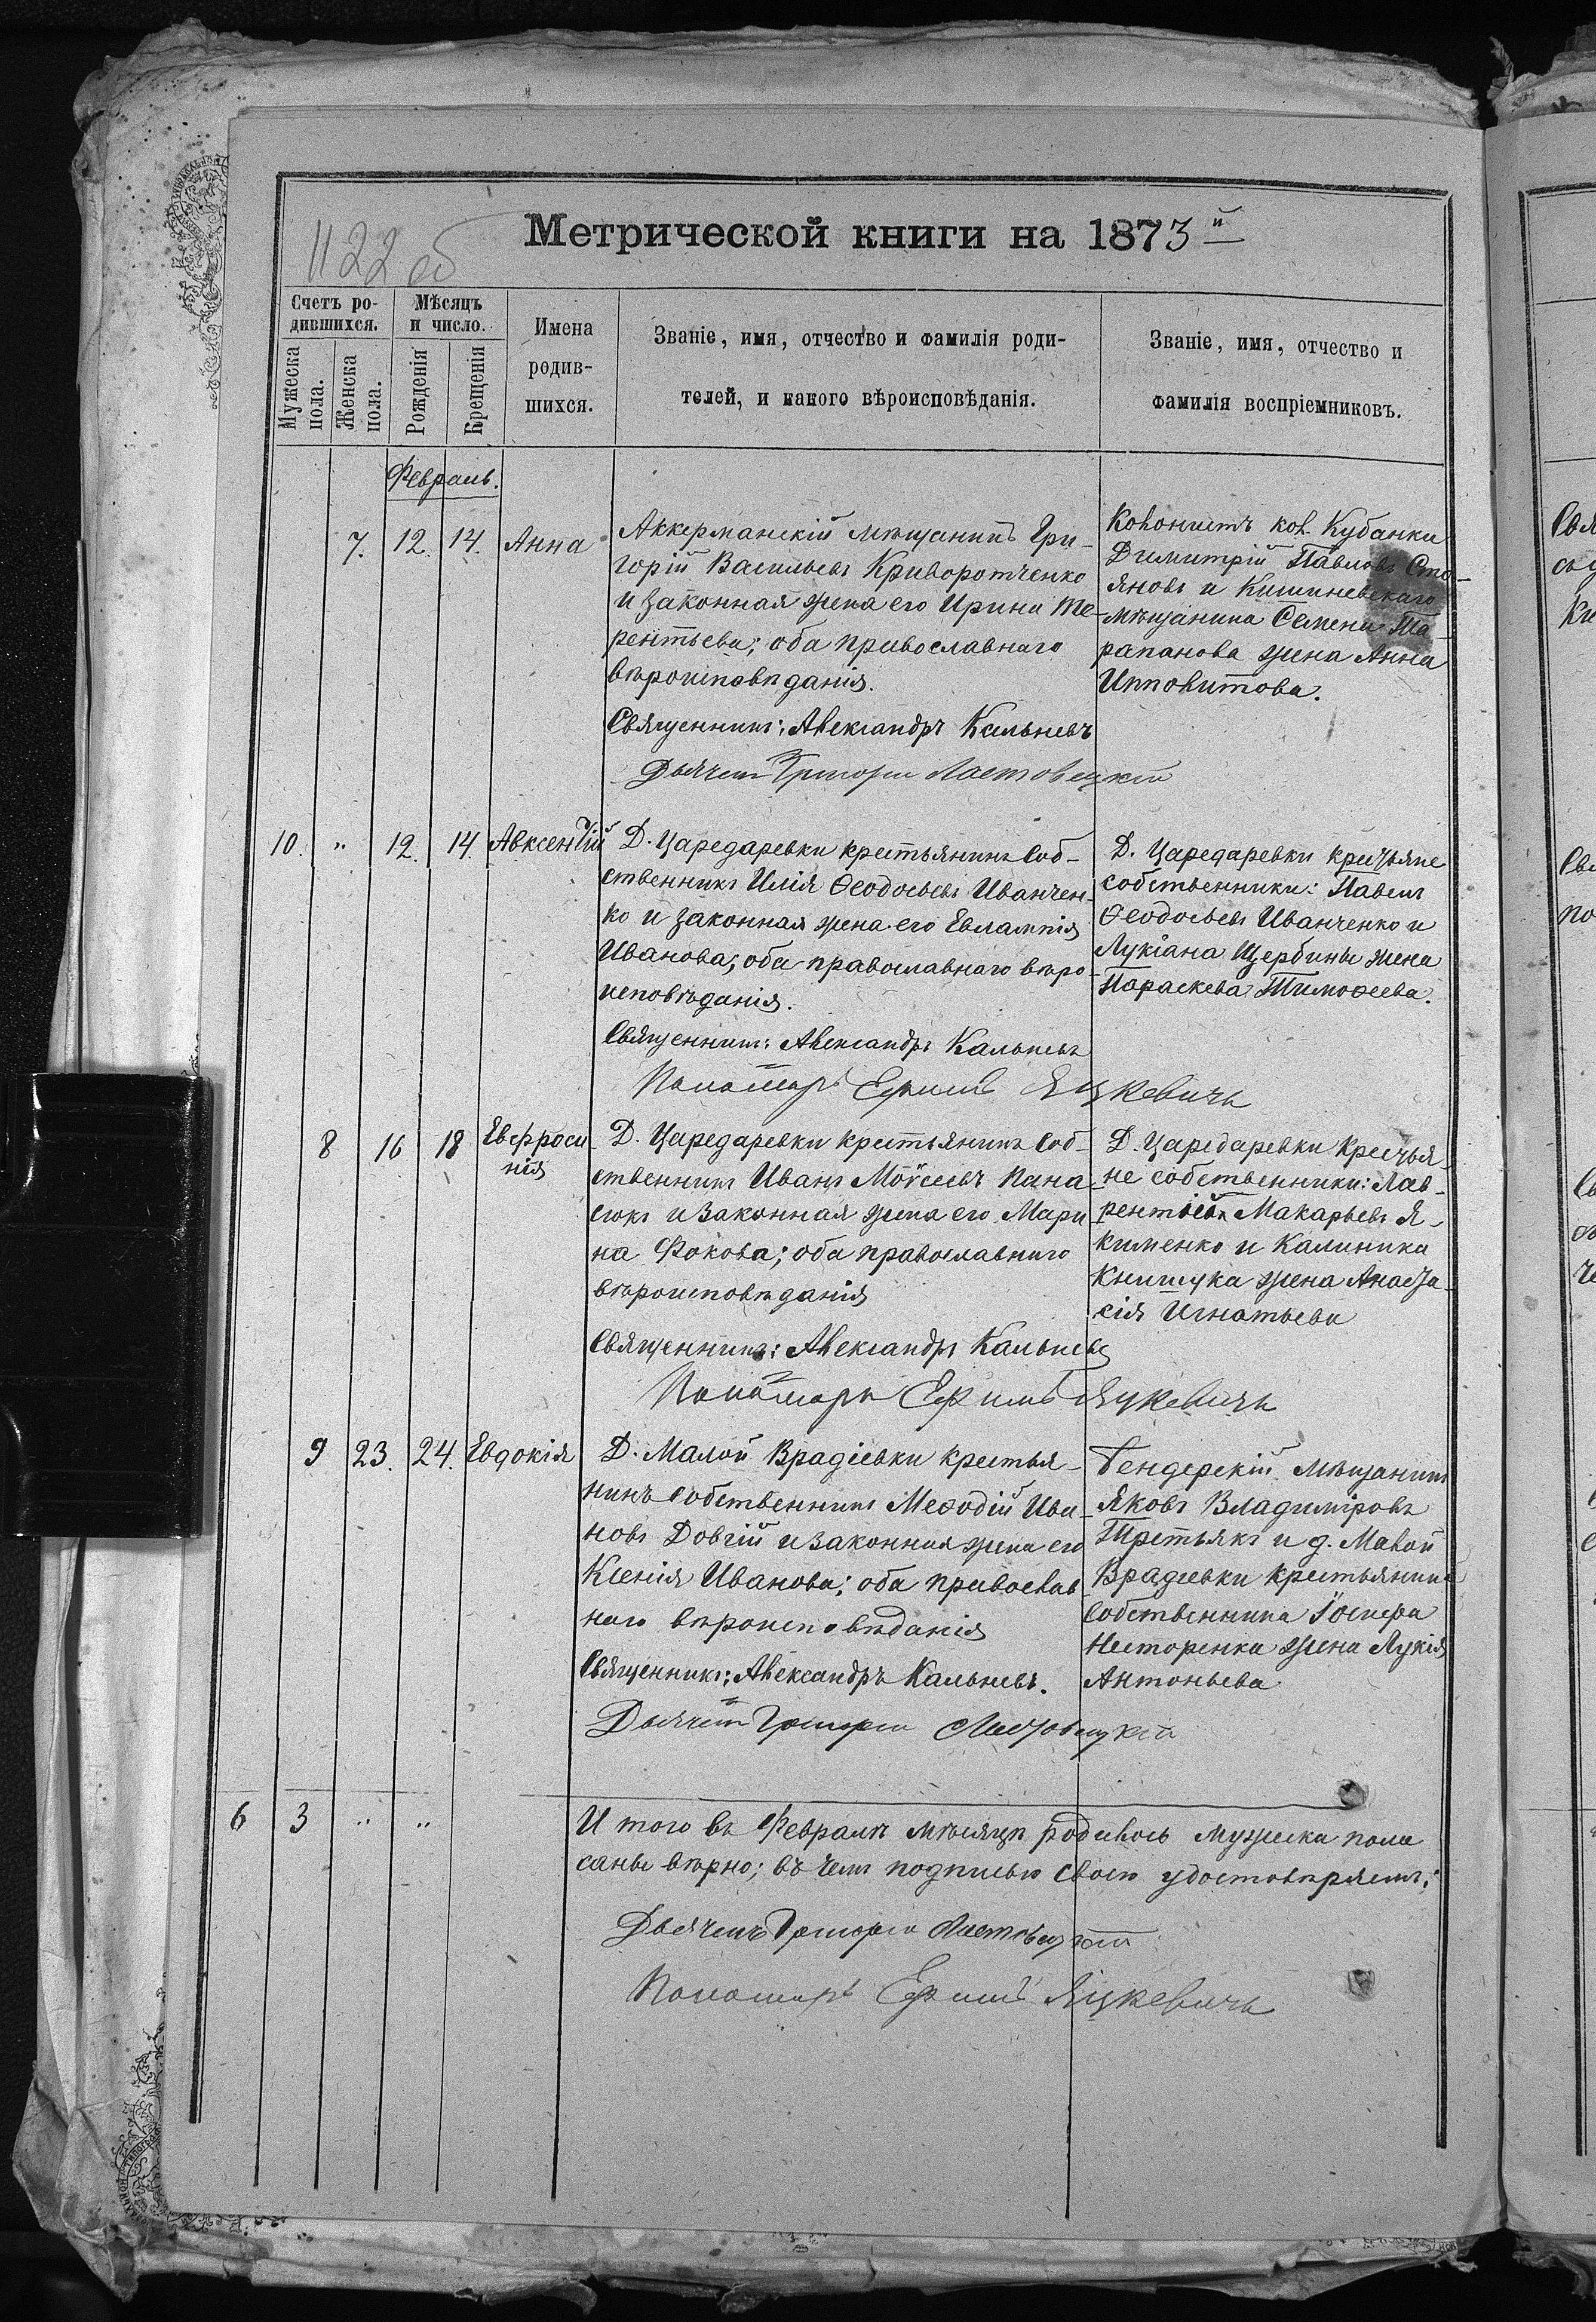 1122 об
Метрической книги на 1873й
Счетъ ро-
дившихся.
Мѣсяцъ
и число.
Мужеска
пола.
Женска
пола.
Рожденія
Крещенія
Имена
родив-
шихся.
Званіе, имя, отчество и фамилія роди-
телей, и какого вѣроисповѣданія.
Званіе, имя, отчество и
фамилія воспріемниковъ.
Февраль.
7. 12. 14. Анна
Аккерманскій мѣщанинъ Гри-
горій Васильевъ Криворотченко
и законная жена его Ирина Те-
рентьева; оба православнаго
вѣроисповѣданія.
Священникъ: Александръ Кальневъ
Дьячекъ Григорій Ластовецкій
Колонистъ кол. Кубанки
Димитрій Павловъ Сто-
яновъ и Кишиневскаго
мѣщанина Семена Та-
рапанова жена Анна
Ипполитова.
10. " 12. 14. Авксентій
Д. Царедаревки крестьянинъ соб-
ственникъ Илія Ѳеодосьевъ Иванчен-
ко и законная жена его Евлампія
Иванова; оба православнаго вѣро-
исповѣданія.
Священникъ: Александръ Кальневъ
Пономарь Ефимъ Яцкевичъ
Д. Царедаревки крестьяне
собственники: Павелъ
Ѳеодосьевъ Иванченко и
Лукіана Щербины жена
Параскева Тимоѳеева.
8 16 18 Евфроси
нія
Д. Царедаревки крестьянинъ соб-
ственникъ Иванъ Моѵсеевъ Пана-
сюкъ и законная жена его Мари
на Фокова; оба православнаго
вѣроисповѣданія
Священникъ: Александръ Кальневъ
Пономарь Ефимъ Яцкевичъ
Д. Царедаревки крестья-
не собственники: Лав-
рентій Макарьевъ Я-
кименко и Калиника
Книшука жена Анаста-
сія Игнатьева
9 23. 24. Евдокія
Д. Малой Врадіевки крестья-
нинъ собственникъ Меѳодій Ива-
новъ Довгій и законная жена его
Ксенія Иванова; оба православ-
наго вѣроисповѣданія
Священникъ: Александръ Кальневъ.
Дьячекъ Григорій Ластовецкій
Бендерскій мѣщанинъ
Яковъ Владиміровъ
Третьякъ и д. Малой
Врадіевки крестьянина
собственника Іосифа
Несторенка жена Лукія
Антоньева
6 3 " "
И того въ Февралѣ мѣсяцѣ родилось мужеска пола
саны вѣрно; въ чемъ подписью своею удостовѣряемъ:
Дьячекъ Григорій Ластовецкій
Пономарь Ефимъ Яцкевичъ